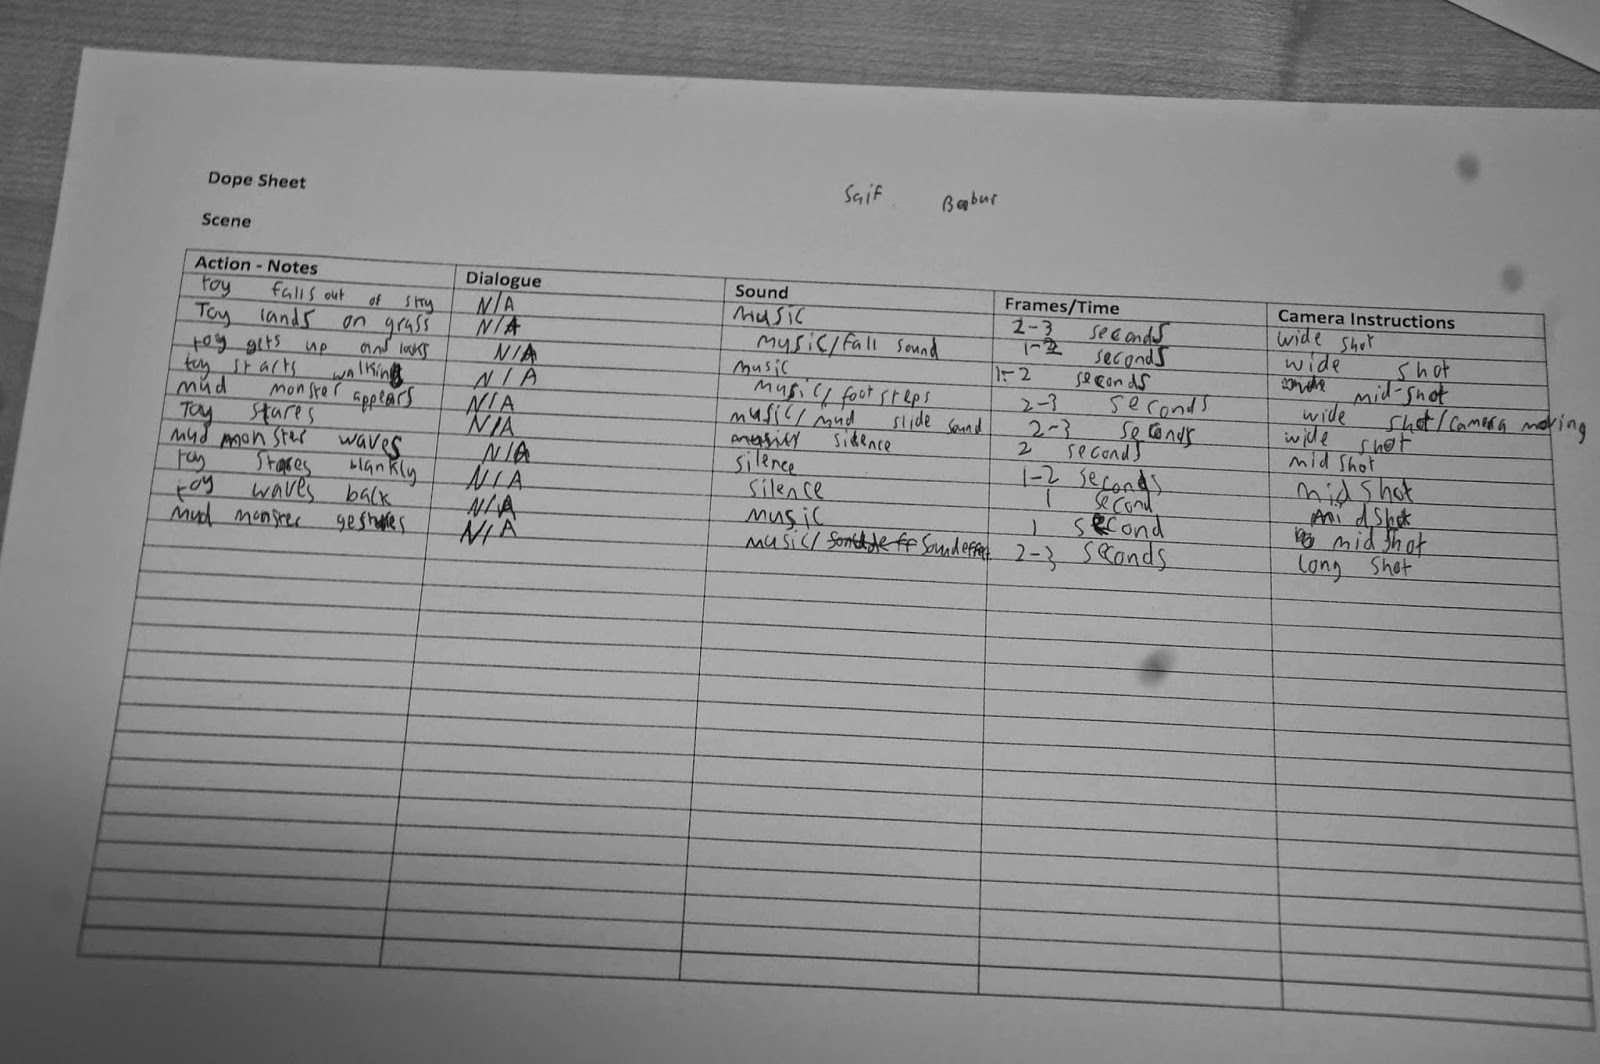 Dope Sheet
Saif Babur
Scene
Action - Notes Dialogue Sound Frames/Time Camera Instructions
toy falls out of sky N/A music 2-3 seconds wide shot
Toy lands on grass N/A music/fall sound 1-2 seconds wide shot
toy gets up and looks N/A music 1-2 seconds mid-shot
toy starts walking N/A music/foot steps 2-3 seconds wide shot/camera moving
mud monster appears N/A music/mud slide sound 2-3 seconds wide shot
Toy stares N/A sidence 2 seconds mid shot
mud monster waves N/A silence 1-2 seconds mid shot
toy stares blankly N/A silence 1 second mid shot
toy waves back N/A music 1 second mid shot
mud monster gestures N/A music/ sound effect 2-3 seconds long shot